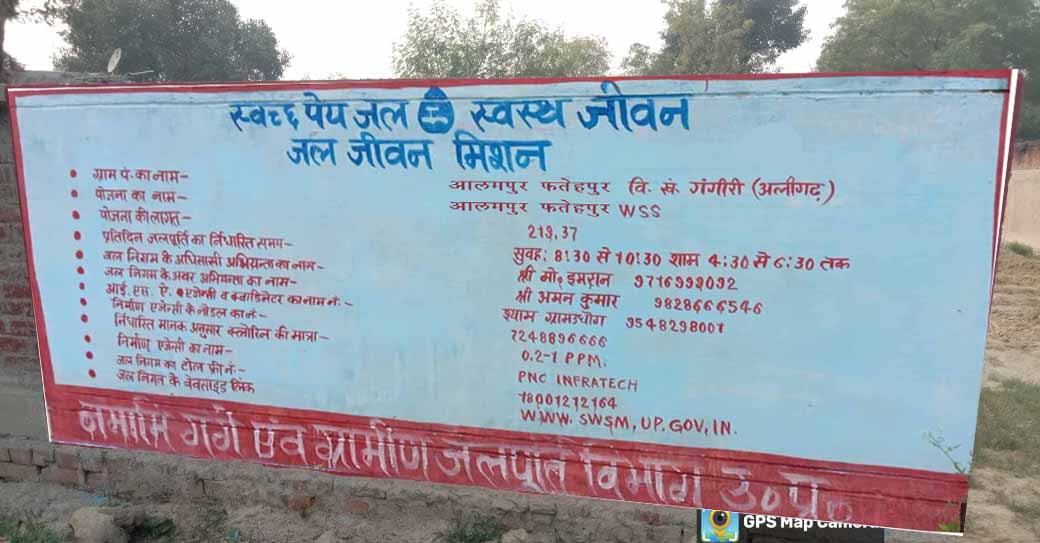 स्वच्छ पेय जल स्वस्थ जीवन
जल जीवन मिशन
ग्राम पं. का नाम- आलमपुर फतेहपुर वि. खं. गंगीरी (अलीगढ़)
योजना का नाम- आलमपुर फतेहपुर WSS
योजना की लागत- 219.37
प्रतिदिन जलपूर्ति का निर्धारित समय- सुवह: 8:30 से 10:30 शाम 4:30 से 6:30 तक
जल निगम के अधिसासी अभियन्ता का नाम- श्री मो. इमरान 9716999092
जल निगम के अवर अभियन्ता का नाम- श्री अमन कुमार 9828666546
आई. एस. ऐ. एजेन्सी व क्वाडिनेटर का नाम नं:- श्याम ग्रामउधोग 9548298001
निर्माण एजेन्सी के नोडल का नं:- 7248896666
निर्धारित मानक अनुसार क्लोरिन की मात्रा- 0.2-1 PPM.
निर्माण एजेंसी का नाम- PNC INFRATECH
जल निगम का टोल फ्री नं:- 18001212164
जल निगम के वेवसाइड लिंक WWW. SWSM, UP. GOV, IN.
नमामि गंगे एंव ग्रामीण जलपूर्ति विभाग उ०प्र०
GPS Map Camera